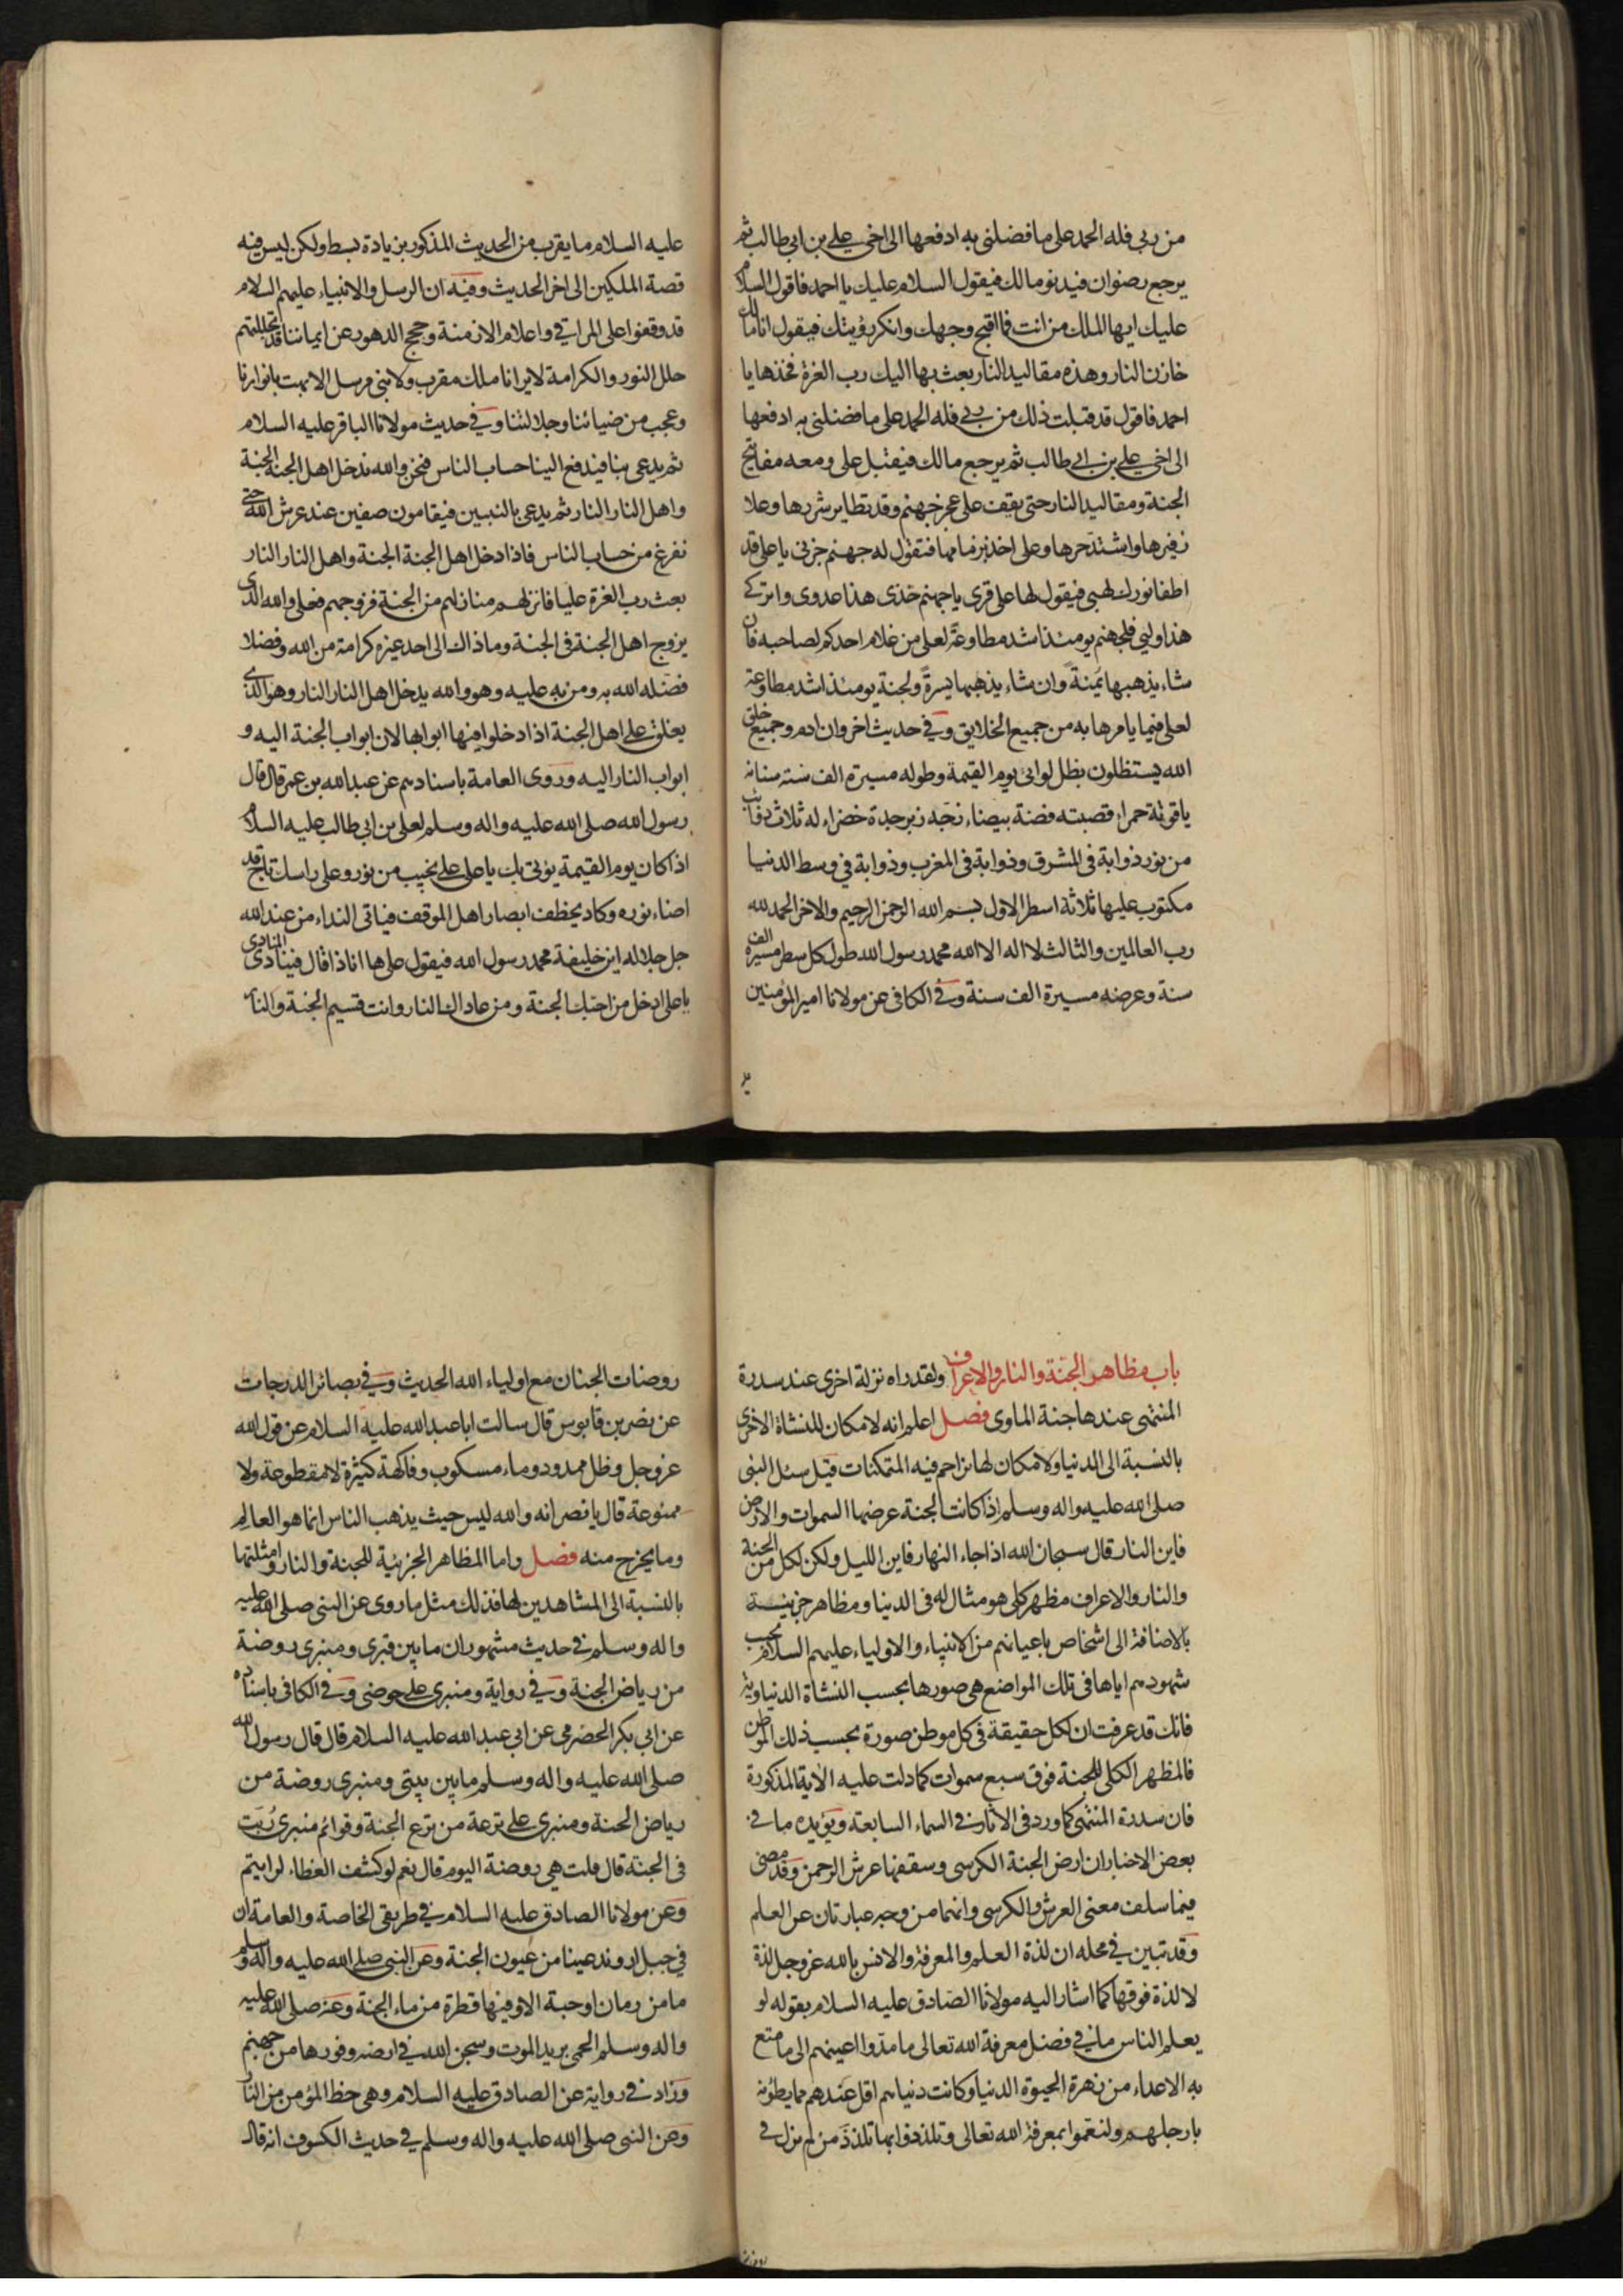 من ربي فله الحمد على ما فضلني به ادفعها الى اخي علي بن ابي طالب ثم
يرجع رضوان فيدنو مالك فيقول السلام عليك يا احمد فاقول السلام
عليك ايها الملك من انت فما اقبح وجهك وانكر رؤيتك فيقول انا مالك
خازن النار وهذه مقاليد النار بعث بها اليك رب العزة فخذها يا
احمد فاقول قد قبلت ذلك من ربي فله الحمد على ما فضلني به ادفعها
الى اخي علي بن ابي طالب ثم يرجع مالك فيقبل على ومعه مفاتيح
الجنة ومقاليد النار حتى يقف على عجز جهنم وقد تطاير شررها وعلا
زفيرها واشتد حرها وعلى اخذ بزمامها فتقول له جهنم جزني يا على قد
اطفا نورك لهبي فيقول لها على قرى يا جهنم خذى هذا عدوى واتركي
هذا وليي فلجهنم يومئذ اشد مطاوعة لعلى من غلام احدكم لصاحبه فان
شاء يذهبها يمنة وان شاء يذهبها يسرة ولجنة يومئذ اشد مطاوعة
لعلى فيما يامرها به من جميع الخلايق وفي حديث اخر وان ادم وجميع خلق
الله يستظلون بظل لوائى يوم القيمة وطوله مسيرة الف سنة سنانه
ياقوتة حمراء قصبته فضة بيضاء زجه زبرجدة خضراء له ثلاث ذوائب
من نور ذوابة في المشرق وذوابة في المغرب وذوابة في وسط الدنيا
مكتوب عليها ثلاثة اسطر الاول بسم الله الرحمن الرحيم والاخر الحمد لله
رب العالمين والثالث لا اله الا الله محمد رسول الله طول كل سطر مسيرة الف
سنة وعرضه مسيرة الف سنة وفي الكافي عن مولانا امير المؤمنين
عليه السلام ما يقرب من الحديث المذكور بزيادة بسط ولكن ليس فيه
قصة الملكين الى اخر الحديث وفيه ان الرسل والانبياء عليهم السلام
قد وقفوا على المراقي واعلام الازمنة وحجج الدهور عن ايماننا قد تجللتهم
حلل النور والكرامة لا يرانا ملك مقرب ولا نبي مرسل الا بهت بانوارنا
وعجب من ضيائنا وجلالتنا وفي حديث مولانا الباقر عليه السلام
ثم يدعى بنا فيدفع الينا حساب الناس فنحن والله ندخل اهل الجنة الجنة
واهل النار النار ثم يدعى بالنبيين فيقامون صفين عند عرش الله حتى
نفرغ من حساب الناس فاذا دخل اهل الجنة الجنة واهل النار النار
بعث رب العزة عليا فانزلهم منازلهم من الجنة فزوجهم فعلى والله الذى
يزوج اهل الجنة في الجنة وما ذاك الى احد غيره كرامة من الله وفضلا
فضله الله به ومن به عليه وهو والله يدخل اهل النار النار وهو الذى
يغلق على اهل الجنة اذا دخلوا فيها ابوابها لان ابواب الجنة اليه و
ابواب النار اليه وروى العامة باسنادهم عن عبد الله بن عمر قال قال
رسول الله صلى الله عليه واله وسلم لعلى بن ابي طالب عليه السلام
اذا كان يوم القيمة يؤتى بك يا على على نجيب من نور وعلى راسك تاج قد
اضاء نوره وكاد يخطف ابصار اهل الموقف فياتى النداء من عند الله
جل جلاله اين خليفة محمد رسول الله فيقول على ها انا ذا قال فينادى المنادى
يا على ادخل من احبك الجنة ومن عاداك النار وانت قسيم الجنة والنار
باب مظاهر الجنة والنار والاعراف ولقد راه نزلة اخرى عند سدرة
المنتهى عندها جنة الماوى فصل اعلم انه لا مكان للنشاة الاخرى
بالنسبة الى الدنيا ولا مكان لها تزاحم فيه المتمكنات قيل سئل النبى
صلى الله عليه واله وسلم اذا كانت الجنة عرضها السموات والارض
فاين النار قال سبحان الله اذا جاء النهار فاين الليل ولكن لكل من الجنة
والنار والاعراف مظهر كلى هو مثال له في الدنيا ومظاهر جزئية
بالاضافة الى اشخاص باعيانهم من الانبياء والاولياء عليهم السلام بحسب
شهودهم اياها في تلك المواضع هى صورها بحسب النشاة الدنياوية
فانك قد عرفت ان لكل حقيقة في كل موطن صورة بحسب ذلك الموطن
فالمظهر الكلى للجنة فوق سبع سموات كما دلت عليه الاية المذكورة
فان سدرة المنتهى كما ورد في الاثار في السماء السابعة ويؤيده ما في
بعض الاخبار ان ارض الجنة الكرسى وسقفها عرش الرحمن وقد مضى
فيما سلف معنى العرش والكرسى وانهما من وجه عبارتان عن العلم
وقد تبين في محله ان لذة العلم والمعرفة والانس بالله عز وجل لذة
لا لذة فوقها كما اشار اليه مولانا الصادق عليه السلام بقوله لو
يعلم الناس ما في فضل معرفة الله تعالى ما مدوا اعينهم الى ما متع
به الاعداء من زهرة الحيوة الدنيا وكانت دنياهم اقل عندهم مما يطؤنه
بارجلهم ولنعموا بمعرفة الله تعالى وتلذذوا بها تلذذ من لم يزل في
روضات الجنان مع اولياء الله الحديث وفي بصائر الدرجات
عن نصر بن قابوس قال سالت ابا عبد الله عليه السلام عن قول الله
عز وجل وظل ممدود وماء مسكوب وفاكهة كثيرة لا مقطوعة ولا
ممنوعة قال يا نصر انه والله ليس حيث يذهب الناس انما هو العالم
وما يخرج منه فصل واما المظاهر الجزئية للجنة والنار وامثلتها
بالنسبة الى المشاهدين لها فذلك مثل ما روى عن النبى صلى الله عليه
واله وسلم في حديث مشهور ان ما بين قبرى ومنبرى روضة
من رياض الجنة وفي رواية ومنبرى على حوضى وفي الكافى باسناده
عن ابي بكر الحضرمى عن ابي عبد الله عليه السلام قال قال رسول الله
صلى الله عليه واله وسلم ما بين بيتى ومنبرى روضة من
رياض الجنة ومنبرى على ترعة من ترع الجنة وقوائم منبرى ربت
في الجنة قال قلت هى روضة اليوم قال نعم لو كشف الغطاء لرايتم
وعن مولانا الصادق عليه السلام في طريقى الخاصة والعامة ان
في جبل اروند عينا من عيون الجنة وعن النبى صلى الله عليه واله وسلم
ما من رمان او حبة الا وفيها قطرة من ماء الجنة وعنه صلى الله عليه
واله وسلم الحمى بريد الموت وسجن الله في ارضه وفورها من جهنم
وزاد في رواية عن الصادق عليه السلام وهى حظ المؤمن من النار
وعن النبى صلى الله عليه واله وسلم في حديث الكسوف انه قال